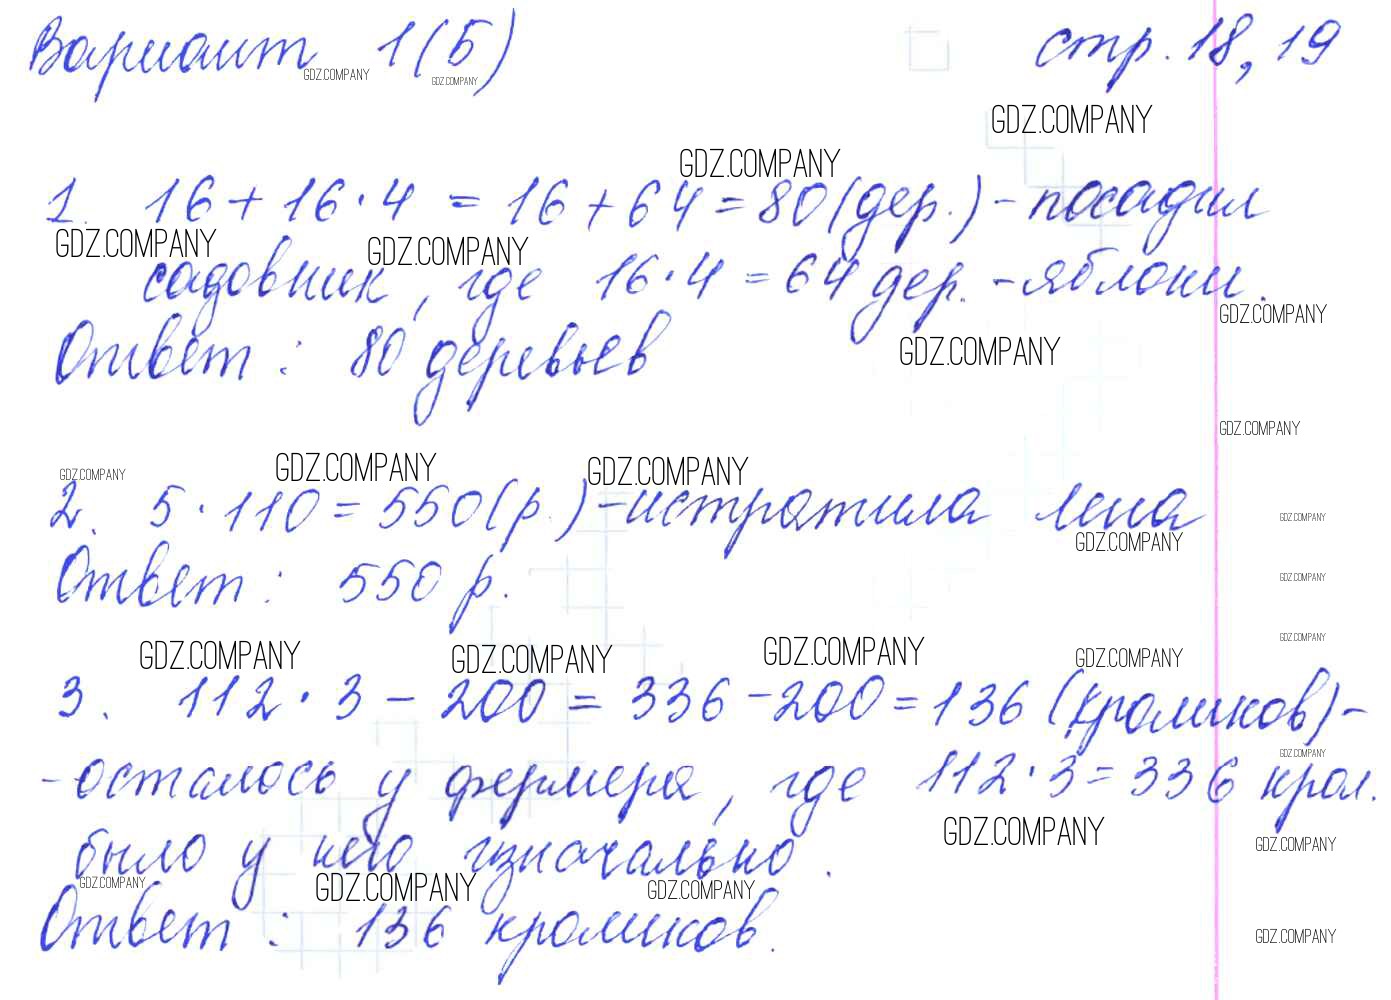 Вариант 1(Б) стр. 18, 19
GDZ.COMPANY GDZ.COMPANY
GDZ.COMPANY
GDZ.COMPANY
1. 16 + 16 · 4 = 16 + 64 = 80 (дер.) - посадил
GDZ.COMPANY GDZ.COMPANY
садовник, где 16 · 4 = 64 дер. - яблони.
GDZ.COMPANY
Ответ: 80 деревьев
GDZ.COMPANY
GDZ.COMPANY
GDZ.COMPANY GDZ.COMPANY GDZ.COMPANY
2. 5 · 110 = 550 (р.) - истратила Лена
GDZ.COMPANY
GDZ.COMPANY
Ответ: 550 р.
GDZ.COMPANY
GDZ.COMPANY
GDZ.COMPANY GDZ.COMPANY GDZ.COMPANY GDZ.COMPANY
3. 112 · 3 - 200 = 336 - 200 = 136 (кроликов) -
GDZ.COMPANY
- осталось у фермера, где 112 · 3 = 336 крол.
GDZ.COMPANY GDZ.COMPANY
было у него изначально.
GDZ.COMPANY GDZ.COMPANY GDZ.COMPANY
Ответ: 136 кроликов.
GDZ.COMPANY